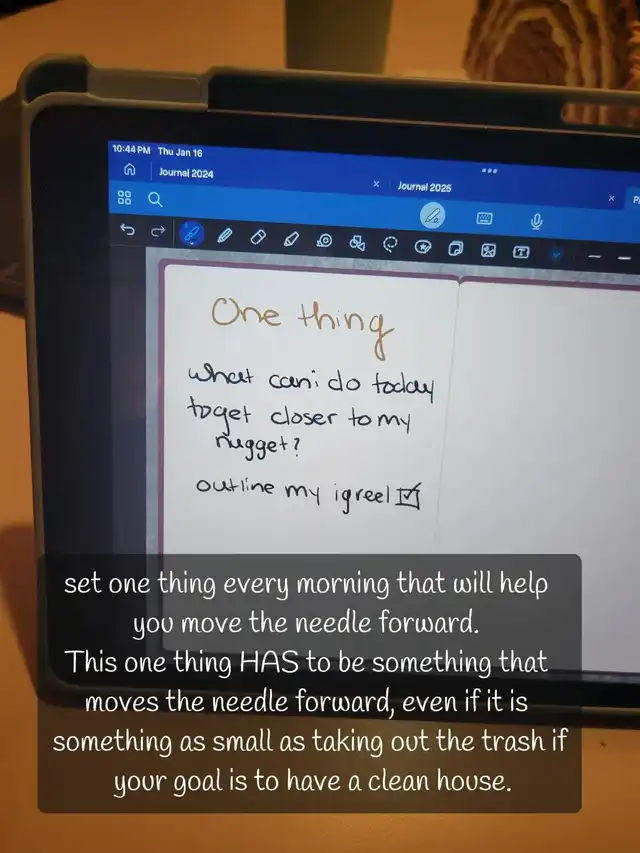 10:44 PM Thu Jan 16
Journal 2024
Journal 2025
One thing
what can i do today
to get closer to my
nugget?
outline my ig reel
set one thing every morning that will help
you move the needle forward.
This one thing HAS to be something that
moves the needle forward, even if it is
something as small as taking out the trash if
your goal is to have a clean house.